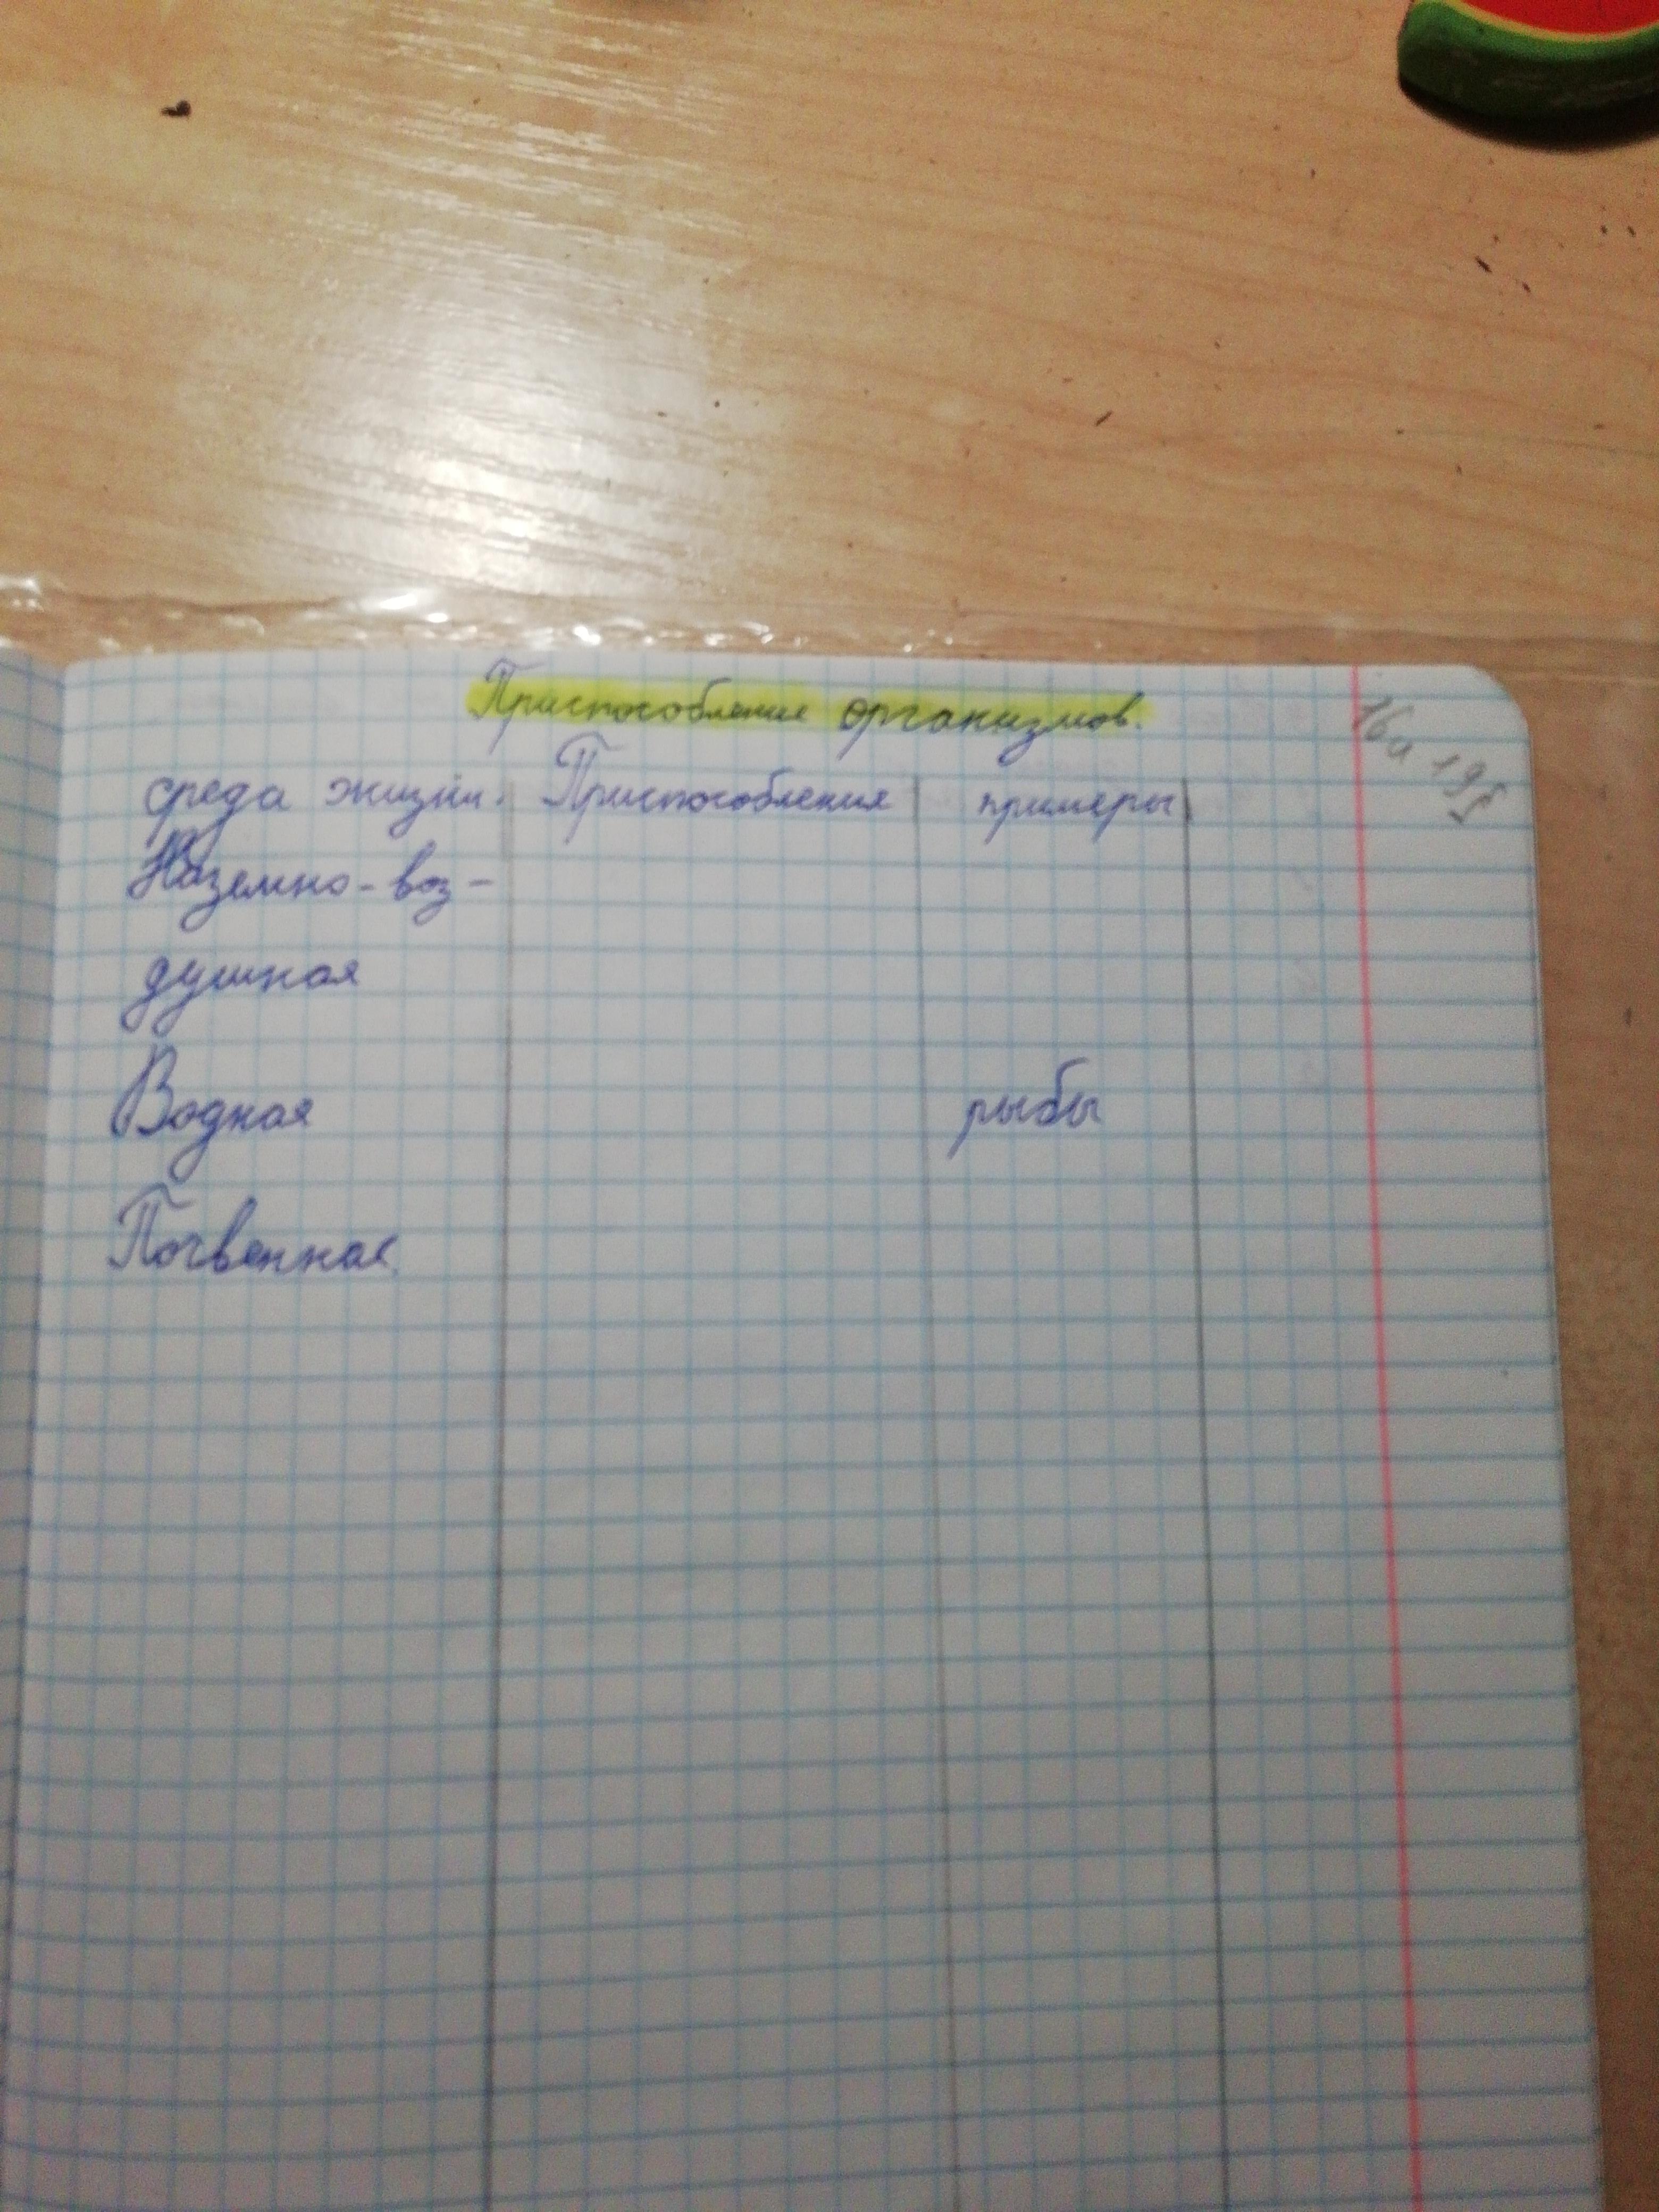 Приспособление организмов.
среда жизни. Приспособления примеры
Наземно-воз-
душная
Водная рыбы
Почвенная